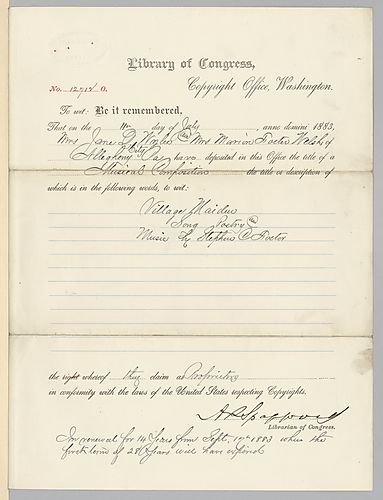 Library of Congress,
Copyright Office, Washington.
No. 12717 O.
To wit: Be it remembered,
That on the 11 day of July, anno domini 1883,
Mrs Jane D. Wiley & Mrs Marion Foster Welsh, of
Allegheny City Pa have deposited in this Office the title of a
Musical Composition the title or description of
which is in the following words, to wit:
Village Maiden
Song Poetry &
Music by Stephen C. Foster
the right whereof they claim as Proprietors
in conformity with the laws of the United States respecting Copyrights.
A R Spofford
Librarian of Congress.
In renewal for 14 Years from Sept. 17th 1883 when the
first term of 28 Years will have expired